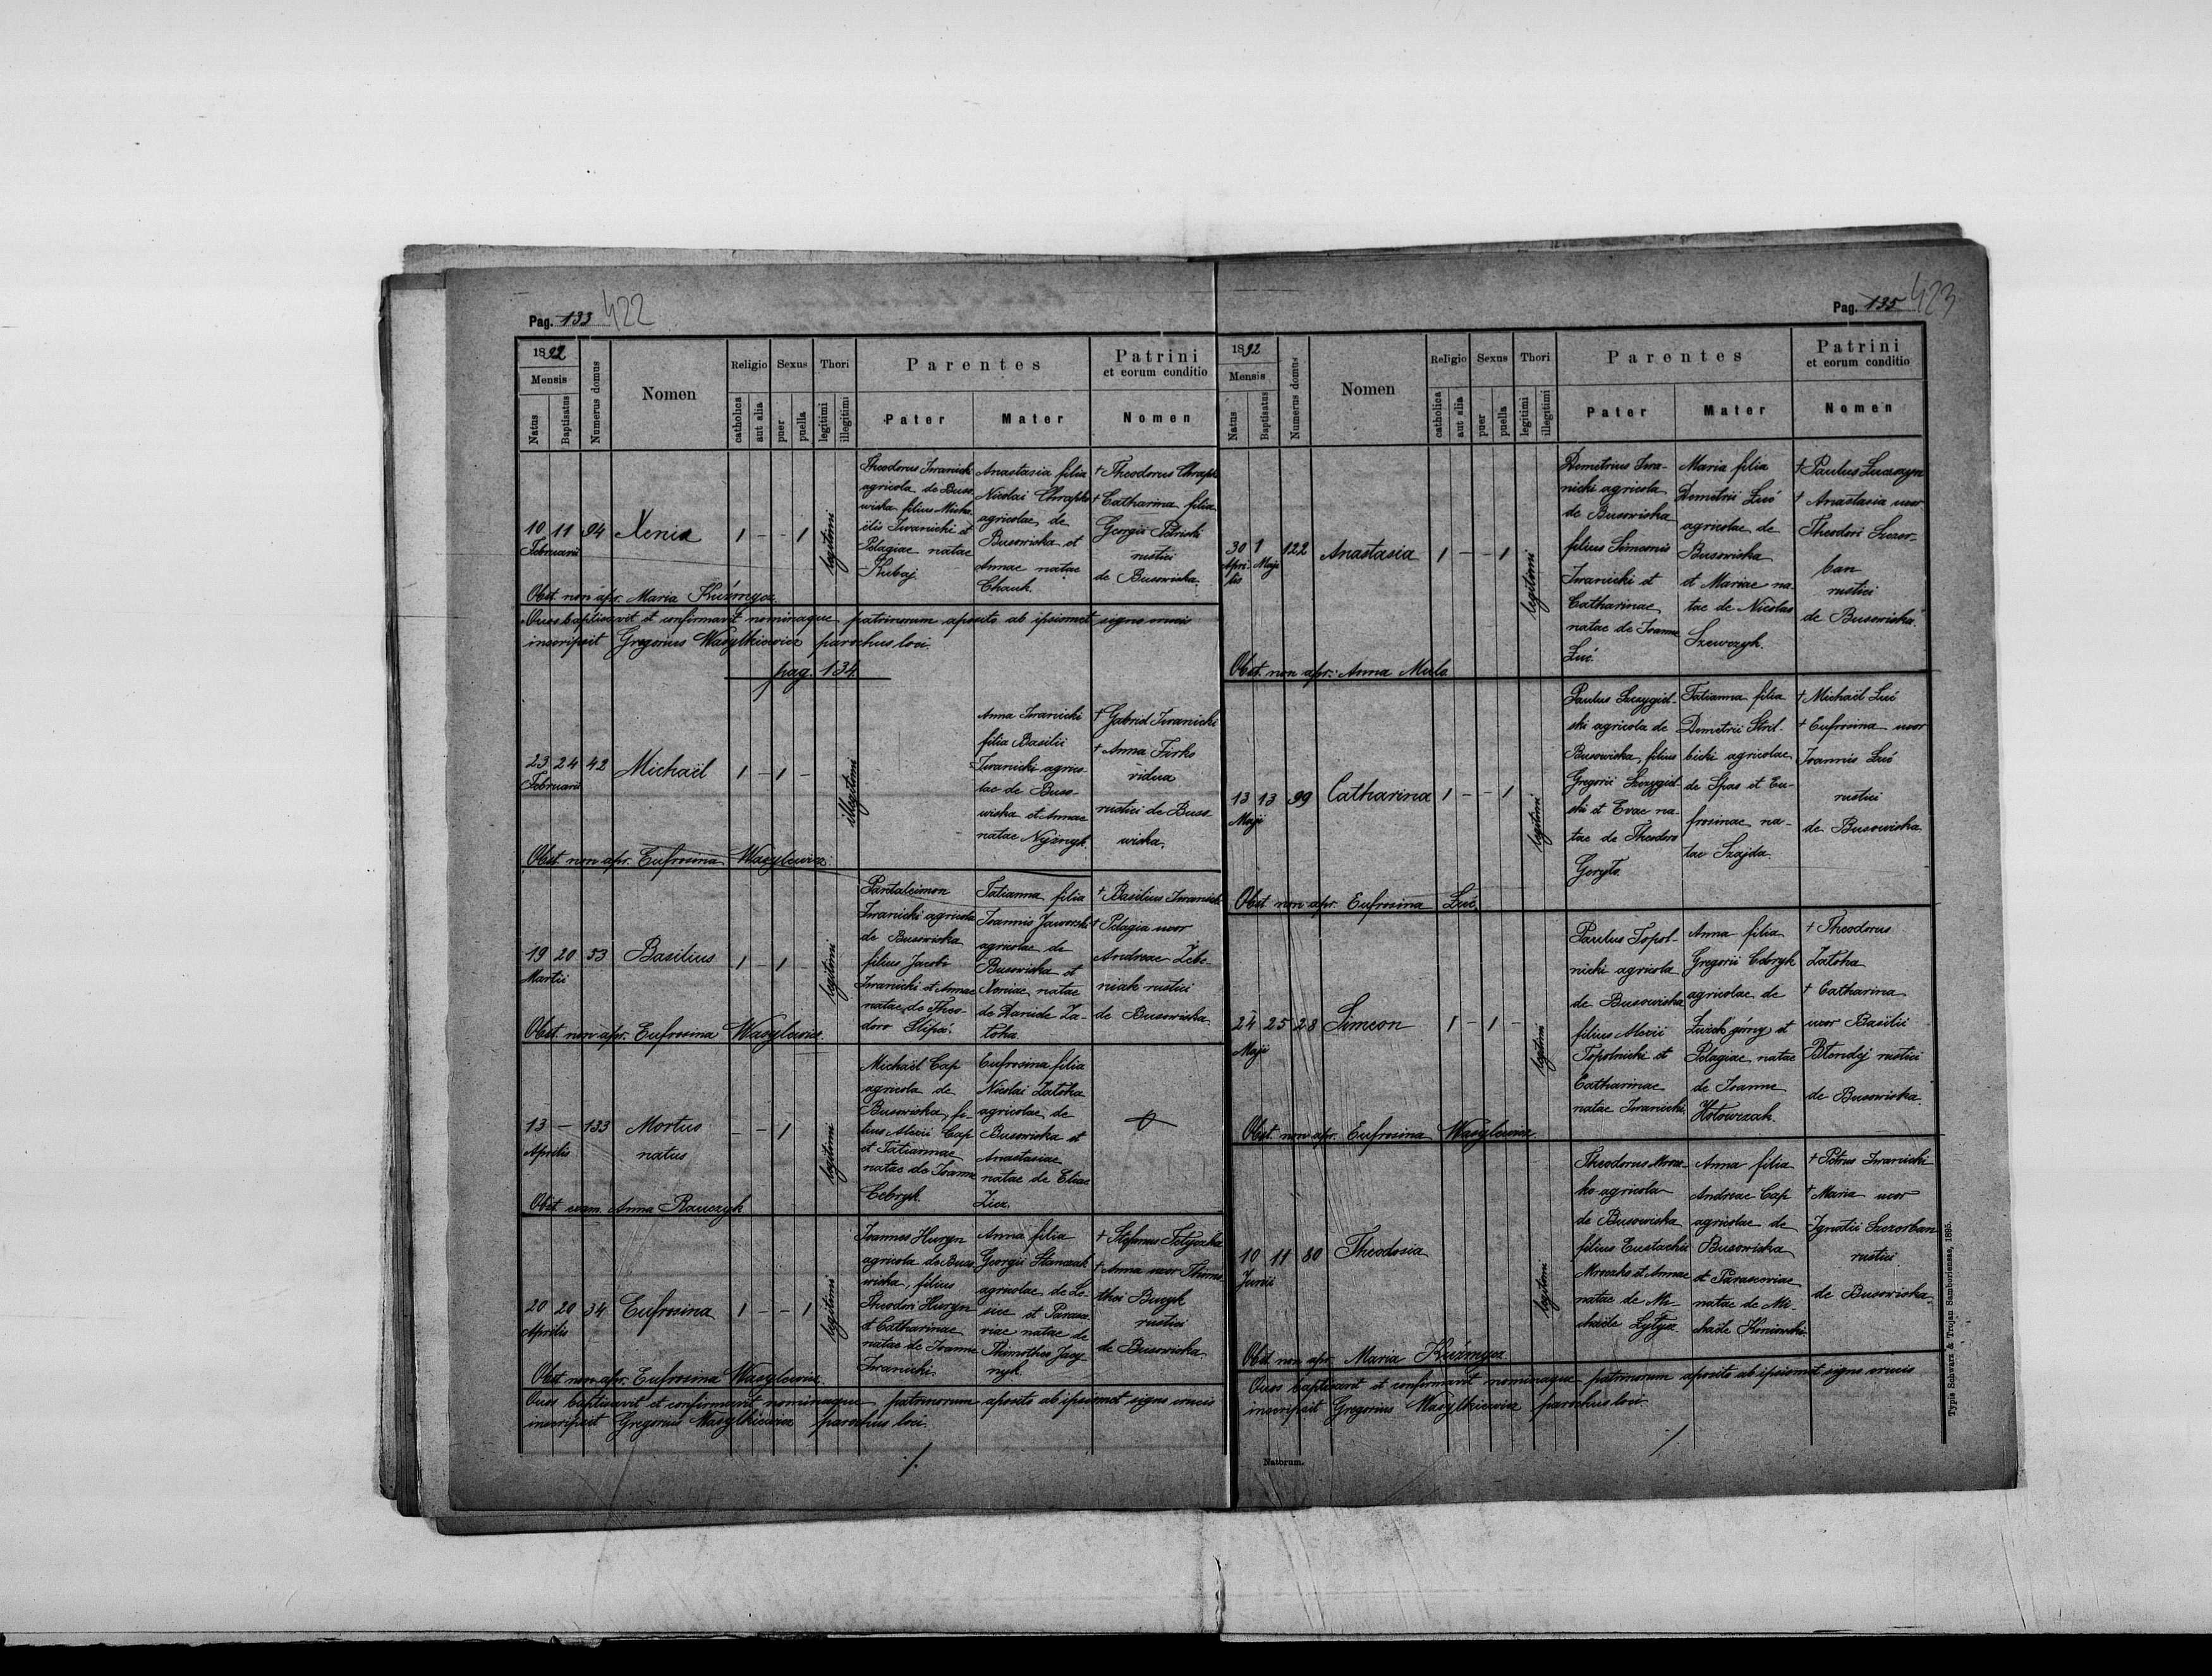 Pag. 133 422
1892
Mensis
Natus
Baptisatus
Numerus domus
Nomen
Religio
catholica
aut alia
Sexus
puer
puella
Thori
legitimi
illegitimi
Parentes
Pater
Mater
Patrini
et eorum conditio
Nomen
10 11 94 Xenia 1 - - 1 legitimi
Februarii
Theodorus Iwanicki
agricola de Buso
wiska filius Micha
elis Iwanicki et
Pelagiae natae
Kubaj
Anastasia filia
Nicolai Chrapko
agricolae de
Busowiska et
Annae natae
Chauk.
† Theodorus Chrapko
† Catharina filia
Georgii Petricki
rustici
de Busowiska.
Obst. non apr. Maria Kuźmycz
Quos baptisavit et confirmavit nominaque patrinorum aposito ab ipsismet signo crucis
inscripsit Gregorius Wasylkiewicz parochus loci.
pag. 134.
23 24 42 Michaël 1 - 1 - illegitimi
Februarii
Anna Iwanicki
filia Basilii
Iwanicki agrico-
lae de Buso-
wiska et Annae
natae Nyżnyk.
† Gabriel Iwanicki
† Anna Firko
vidua
rustici de Buso
wiska.
Obst. non apr. Eufrosina Wasylewicz.
19 20 53 Basilius 1 - 1 - legitimi
Martii
Pantaleimon
Iwanicki agricola
de Busowiska
filius Jacobi
Iwanicki et Annae
natae de Theo-
doro Slipa.
Tatianna filia
Joannis Jaworski
agricolae de
Busowiska et
Xeniae natae
de Daniele Za-
toka.
† Basilius Iwanicki
† Pelagia uxor
Andreae Zebe-
niak rustici
de Busowiska.
Obst. non apr. Eufrosina Wasylewicz.
13 — 133 Mortus - - 1 legitimi
Aprilis natus
Michaël Cap
agricola de
Busowiska, fi-
lius Alexii Cap
et Tatiannae
natae de Joanne
Cebryk.
Eufrosina filia
Nicolai Zatoka
agricolae de
Busowiska et
Anastasiae
natae de Elias
Obst. exam. Anna Rauczyk
20 20 34 Eufrosina 1 - - 1 legitimi
Aprilis
Joannes Huryn
agricola de Buso
wiska, filius
Theodori Huryn
et Catharinae
natae de Joanne
Iwanicki.
Anna filia
Georgii Stanczak
agricolae de
et Parasce
viae natae de
Thimotheo
nyk.
† Stefanus Fetyczka
† Anna uxor Thimo
thei
rustici
de Busowiska.
Obst. non apr. Eufrosina Wasylewicz.
Quos baptisavit et confirmavit nominaque patrinorum aposito ab ipsismet signo crucis
inscripsit Gregorius Wasylkiewicz parochus loci.
Pag. 135 423
1892
Mensis
Natus
Baptisatus
Numerus domus
Nomen
Religio
catholica
aut alia
Sexus
puer
puella
Thori
legitimi
illegitimi
Parentes
Pater
Mater
Patrini
et eorum conditio
Nomen
30 1 122 Anastasia 1 - - 1 legitimi
Apri- Maji
lis
Demetrius Iwa-
nicki agricola
de Busowiska
filius Simeonis
Iwanicki et
Catharinae
natae de Joanne
Łuć.
Maria filia
Demetrii Łuć
agricolae de
Busowiska
et Mariae na-
tae de Nicolao
Szewczyk.
† Paulus Łuczczyn
† Anastasia uxor
Theodori Szczor-
ban
rustici
de Busowiska.
Obst. non apr. Anna Mulo
13 13 99 Catharina 1 - - 1 legitimi
Maji
Paulus Szczygiel-
ski agricola de
Busowiska, filius
Gregorii Szczygiel
ski et Evae na
tae de Theodoro
Goryto.
Tatianna filia
Demetrii Stril-
bicki agricolae
de Spas et Eu-
frosinae na-
tae Szajda.
† Michaël Łuć
† Eufrosina uxor
Joannis Łuć
rustici
de Busowiska.
Obst. non apr. Eufrosina Łuć.
24 25 28 Simeon 1 - 1 - legitimi
Maji
Paulus Topol-
nicki agricola
de Busowiska
filius Alexii
Topolnicki et
Catharinae
natae Iwanicki.
Anna filia
Gregorii Cebryk
agricolae de
Łużek górny et
Pelagiae natae
de Joanne
Hołowczak.
† Theodorus
Zatoka
† Catharina
uxor Basilii
Błondij rustici
de Busowiska.
Obst. non apr. Eufrosina Wasylewicz.
10 11 80 Theodosia legitimi
Junii
Theodorus Mrocz-
ko agricola
de Busowiska
filius Eustachii
Mroczko et Annae
natae de Mi-
chaële Łytycz.
Anna filia
Andreae Cap
agricolae de
Busowiska
et Parasceviae
natae de Mi-
chaële Koniwski.
† Petrus Iwanicki
† Maria uxor
Ignatii Szczorban
rustici
de Busowiska.
Obst. non apr. Maria Kuźmycz.
Quos baptisavit et confirmavit nominaque patrinorum aposito ab ipsismet signo crucis
inscripsit Gregorius Wasylkiewicz parochus loci.
Natorum.
Typis Schwarz & Trojan Samboriensae, 1895.